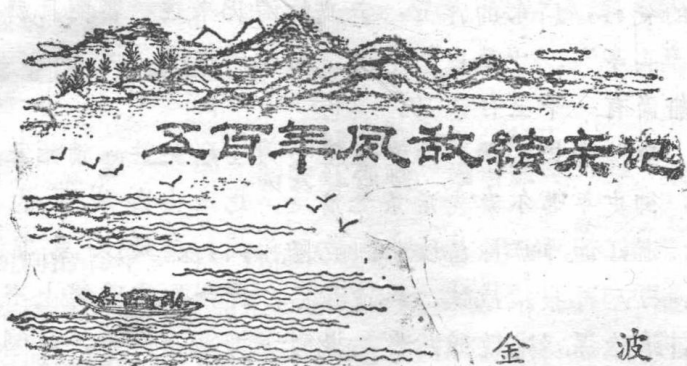 五百年夙敌结亲记
金 波